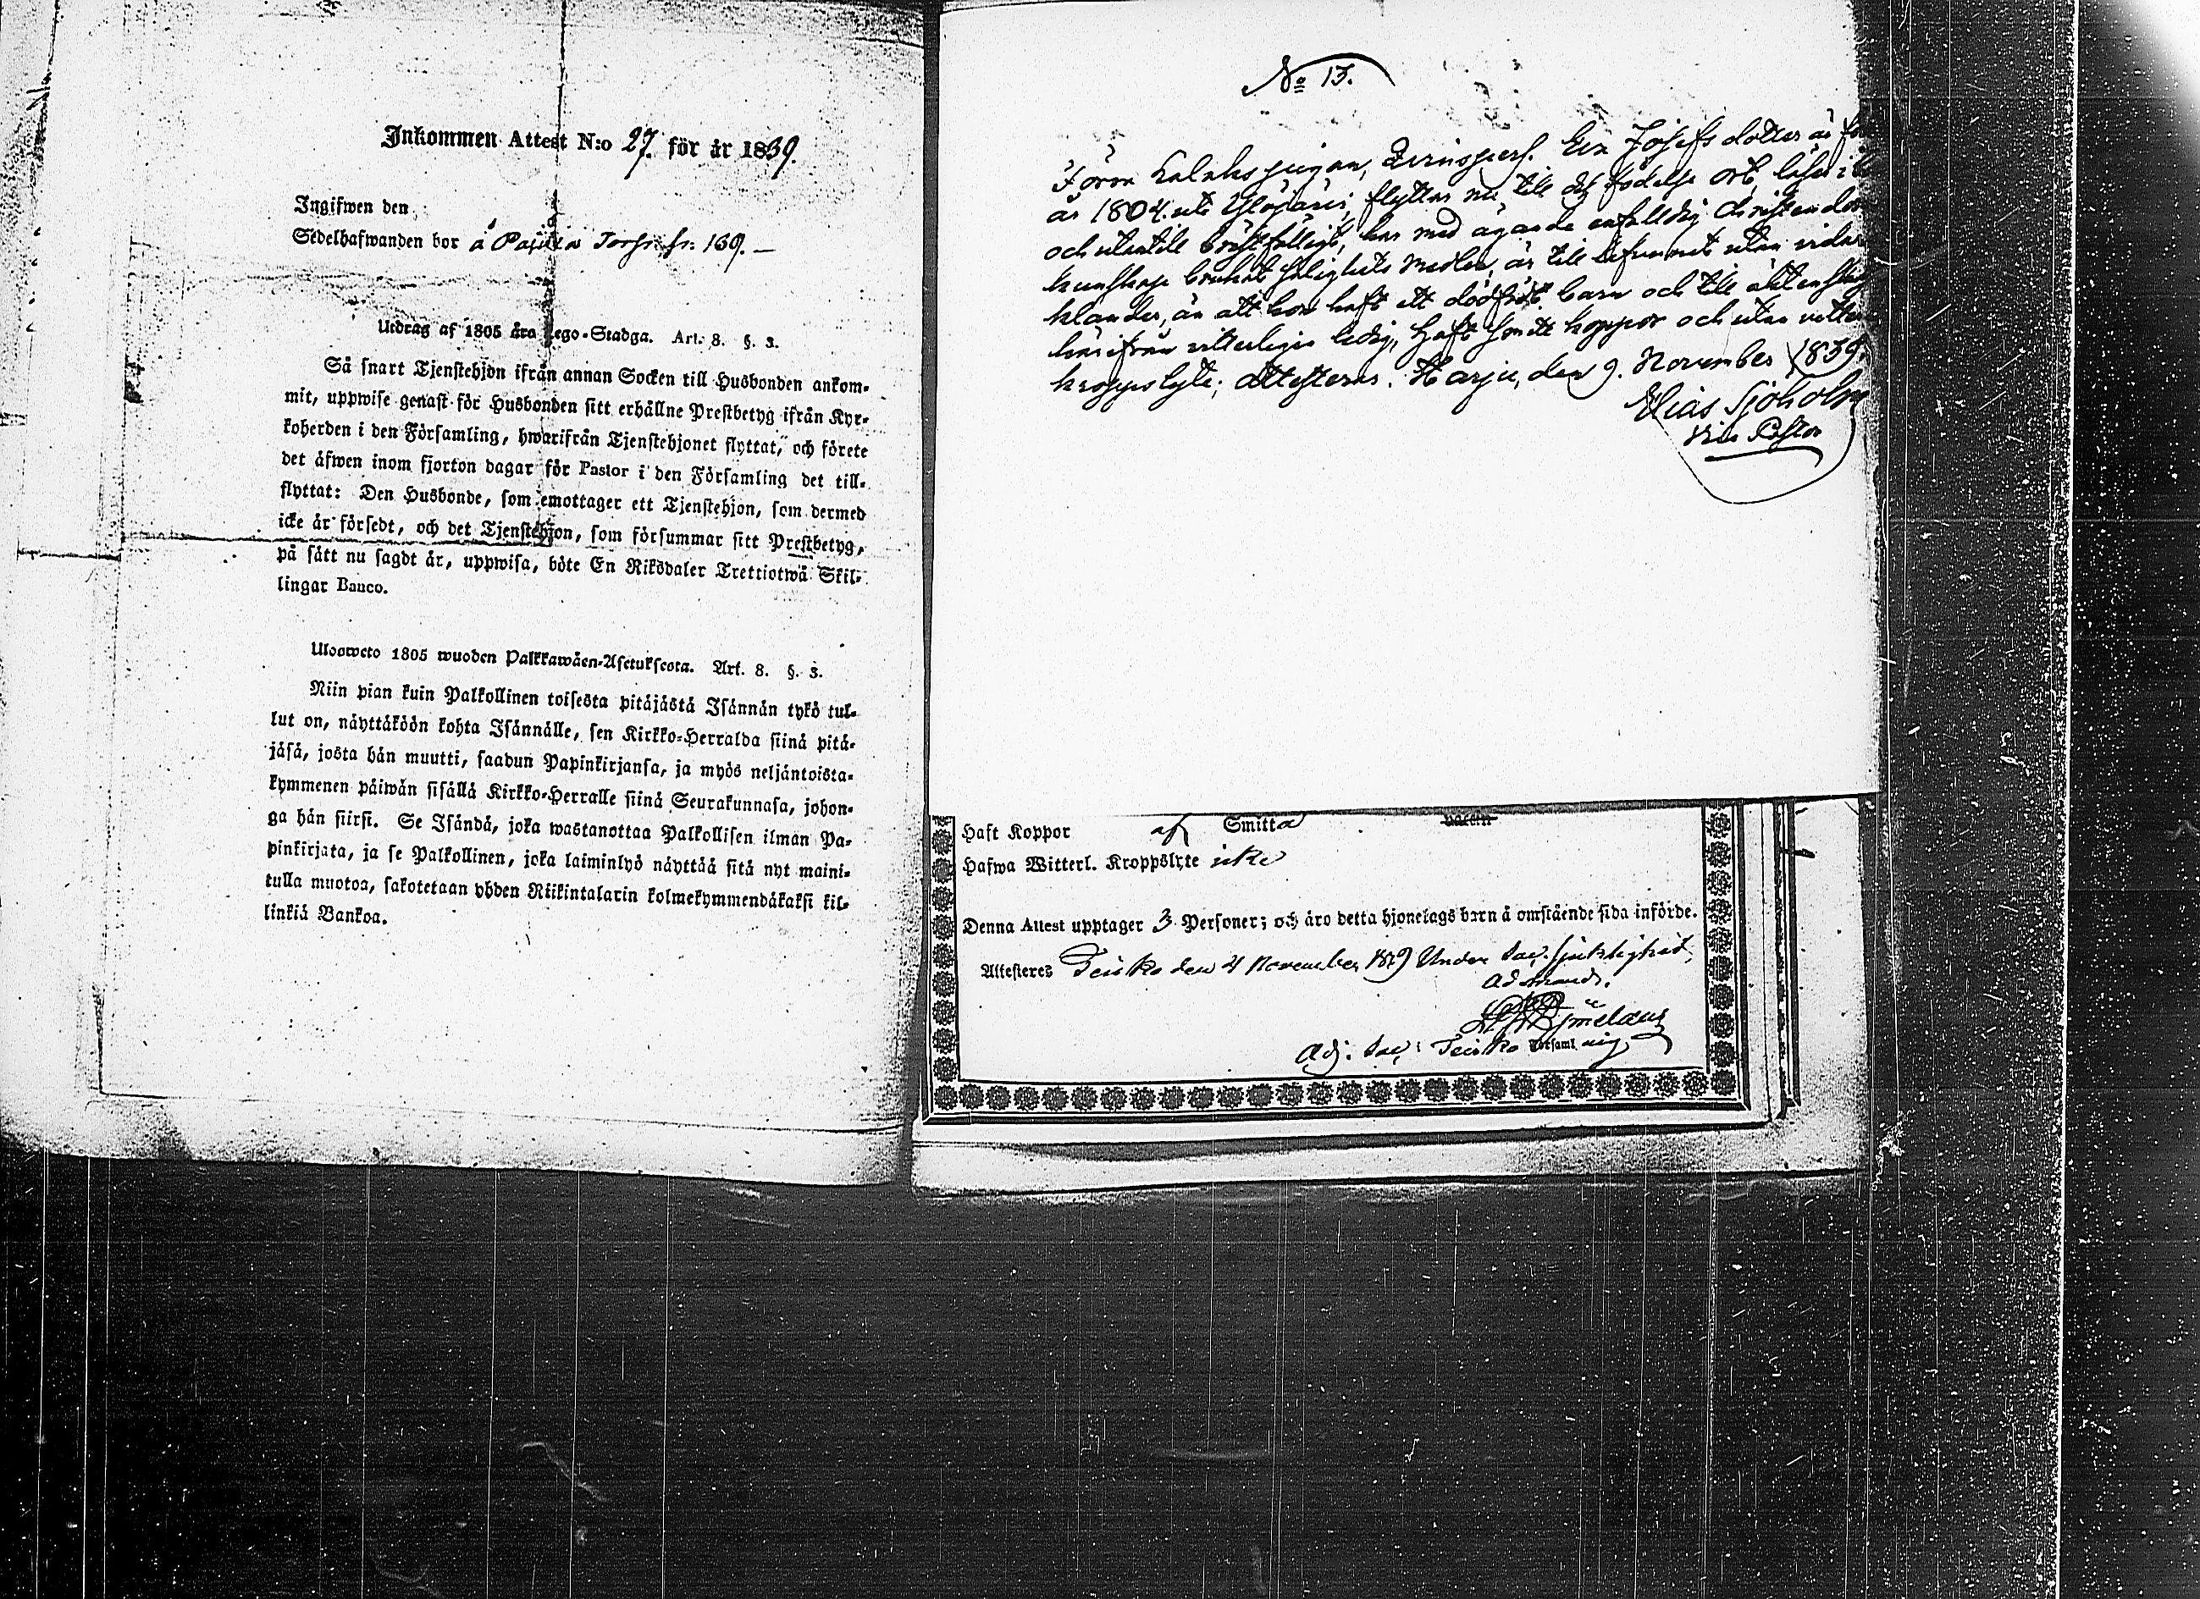 Inkommen Attest N:o 27. för år 1839.
Ingifwen den
Sedelhafwanden bor å 139.
Utdrag af 1805 års Lego-Stadga. Art. 8. §. 3.
Så snart Tjenstehjon ifrån annan Socken till Husbonden ankom-
mit, uppwise genast för Husbonden sitt erhållne Prestbetyg ifrån Kyr-
koherden i den Församling, hwarifrån Tjenstehjonet flyttat, och förete
det äfwen inom fjorton dagar för Pastor i den Församling det till-
flyttat: Den Husbonde, som emottager ett Tjenstehjon, som dermed
icke är försedt, och det Tjenstehjon, som försummar sitt Prestbetyg,
på sätt nu sagdt är, uppwisa, böte En Riksdaler Trettiotwå Skil-
lingar Banco.
Ulosweto 1805 wuoden Palkkawäen-Asetuksesta. Art. 8. §. 3.
Niin pian kuin Palkollinen toisesta pitäjästä Isännän tykö tul-
lut on, näyttäköön kohta Isännälle, sen Kirkko-Herralda siinä pitä-
jäsä, josta hän muutti, saadun Papinkirjansa, ja myös neljäntoista-
kymmenen päiwän sisällä Kirkko-Herralle siinä Seurakunnasa, johon-
ga hän siirsi. Se Isändä, joka wastanottaa Palkollisen ilman Pa-
pinkirjata, ja se Palkollinen, joka laiminlyö näyttää sitä nyt maini-
tulla muotoa, sakotetaan yhden Riikintalarin kolmekymmendäkaksi kil-
linkiä Bankoa.
No 13.
Förra pigan, Josefs dotter är
år 1804. uti flyttar nu till dess födelse ort, läser i
och utantill bristfälligt, har med ägande enfalldig
kunskap brukat salighets medlen, är till utan
klander, än att hon haft ett dödfödt barn och till
härifrån witterligen ledig, haft koppor och utan
kroppslyte; attesterar. Harju, den 9. November 1839.
Elias Sjöholm
Vice Pastor
Haft Koppor af Smitta
Hafwa Witterl. Kroppslyte icke
Denna Attest upptager 3 Personer; och äro detta hjonelags barn å omstående sida införde.
Attesteres Teisko den 4 November 1839 Under Sac. sjuklighet,
ad mand.
Adj. Sac. Teisko Församl ing